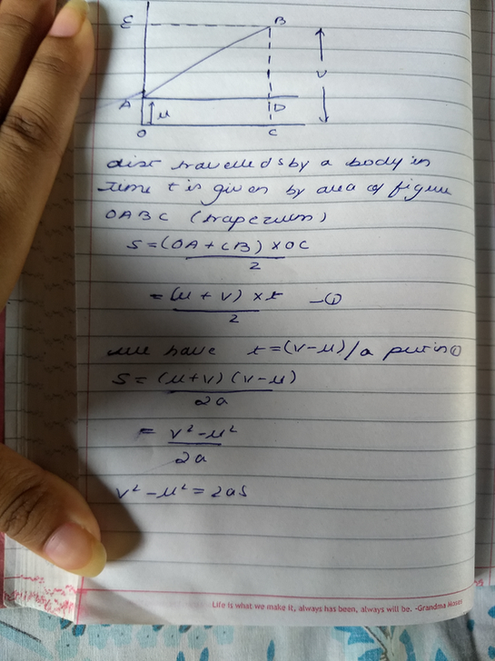 E B
A D
u v
O C
dist travelled s by a body in
time t is given by area of figure
OABC (trapezium)
S = (OA + CB) × OC
2
= (u + v) × t - ①
2
we have t = (v - u)/a put in ①
S = (u + v) (v - u)
2a
= v² - u²
2a
v² - u² = 2as
Life is what we make it, always has been, always will be. -Grandma Moses